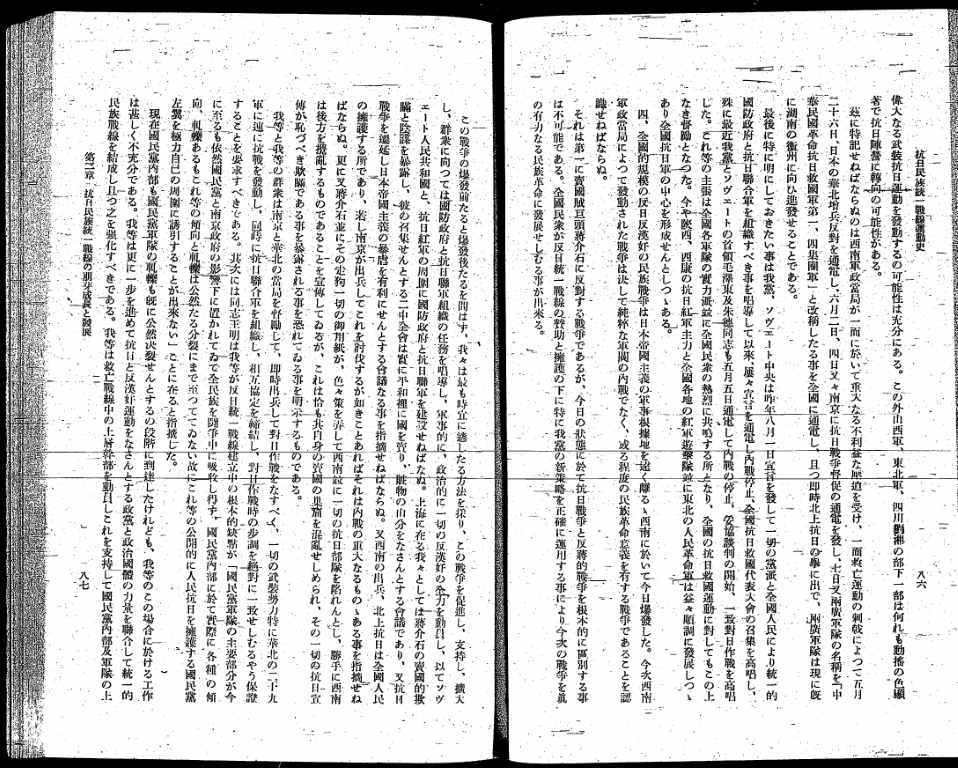 抗日民族統一戰線運動史
八六
偉大なる武裝抗日運動を發動するの可能性は充分にある。この外山西軍、東北軍、四川劉湘の部下一部は何れも動搖の色顯
著で抗日陣營に轉向の可能性がある。
茲に特記せねばならぬのは西南軍政當局が一面に於いて重大なる不利益な壓迫を受け、一面救亡運動の刺戟によつて五月
二十六日、日本の華北增兵反對を通電し、六月二日、四日又々南京に抗日戰爭督促の通電を發し、七日又兩廣軍隊の名稱を「中
華民國革命抗日救國軍第一、四集團軍」と改稱したる事を全國に通電し、且つ卽時北上抗日の擧に出で、兩廣軍隊は現に旣
に湖南の衡州に向ひ進發せることである。
最後に特に明にしておきたい事は我黨、ソヴェート中央は昨年八月一日宣言を發して一切の黨派と全國人民により統一的
國防政府と抗日聯合軍を組織すべき事を唱導して以來、屢々宣言を通電し內戰停止、全國抗日救國代表大會の召集を高唱し、
殊に最近我黨とソヴェートの首領毛澤東及朱德同志も五月五日通電して內戰の停止、妥協談判の開始、一致對日作戰を高唱
した。これ等の主張は全國各軍隊の實力派並に全國民衆の熱烈に共鳴する所となり、全國の抗日救國運動に對してもこの上
なき督勵となつた。今や陝西、西康の抗日紅軍主力と全國各地の紅軍遊擊隊並に東北の人民革命軍は益々順調に發展しつゝ
あり全國抗日軍の中心を形成せんとしつゝある。
四、全國的規模の反日反漢奸の民族戰爭は日本帝國主義の軍事根據地を遠く離るゝ西南に於いて今日爆發した。今次西南
軍政當局によつて發動された戰爭は決して純粹な軍閥の內戰でなく、或る程度の民族革命意義を有する戰爭であることを認
識せねばならぬ。
それは第一に賣國賊巨頭蔣介石に反對する戰爭であるが、今日の狀態に於て抗日戰爭と反蔣的戰爭を根本的に區別する事
は不可能である。全國民衆が反日統一戰線の贊助と擁護の下に特に我黨の新策略を正確に運用する事により今次の戰爭を眞
の有力なる民族革命に發展せしむる事が出來る。
この戰爭の爆發前たると爆發後たるを問はず、我々は最も時宜に適したる方法を採り、この戰爭を促進し、支持し、擴大
し、群衆に向つては國防政府と抗日聯軍組織の任務を唱導し、軍事的に、政治的に一切の反漢奸の全力を動員し、以てソヴ
ェート人民共和國と、抗日紅軍の周圍に國防政府と抗日聯軍を建設せねばならぬ。上海に在る我々としては蔣介石の賣國的欺
瞞と陰謀を暴露し、彼の召集せんとする二中全會は實に平和裡に國を賣り、贓物の山分をなさんとする會議であり、又抗日
戰爭を遷延し日本帝國主義の暴虐を有利にせんとする會議なる事を指摘せねばならぬ。又西南の出兵、北上抗日は全國人民
の擁護する所であり、若し南京が出兵してこれを討伐するが如きことあればそれは內戰の重大なるものゝある事を指摘せね
ばならぬ。更に又蔣介石並にその走狗一切の御用紙が、色々策を弄して西南並に一切の抗日部隊を陷れんとし、勝手に西南
は後方を擾亂するものであることを宣傳してゐるが、これは恰も其自身の賣國の巢窟を混亂せしめられ、その一切の抗日宣
傳が恥づべき欺瞞である事を暴露される事を恐れてゐる事を明示するものである。
我等と我等の群衆は南京と華北の當局を督勵して、卽時出兵して對日作戰をなすべく、一切の武裝勢力特に華北の二十九
軍に速に抗戰を發動し、同時に抗日聯合軍を組織し、相互協定を締結し、對日作戰時の步調を絕對に一致せしむるやう保證
することを要求すべきである。其次には同志王明は我等が反日統一戰線建立中の根本的缺點が「國民黨軍隊の主要部分が今
に至るも依然國民黨と南京政府の影響下に置かれてゐて全民族を鬪爭中に吸收し得ず、國民黨內部に於て實際に各種の傾
向、軋轢あるもこれ等の傾向と軋轢は公然たる分裂にまで至つてゐない故にこれ等の公開的に人民抗日を擁護する國民黨
左翼を極力自己の周圍に誘引することが出來ない」ことに在ると指摘した。
現在國民黨內部も國民黨軍隊の軋轢も旣に公然決裂せんとするの段階に到達したけれども、我等のこの場合に於ける工作
は甚しく不充分である。我等は更に一步を進めて抗日と反漢奸運動をなさんとする政黨と政治團體の力量を聯合して統一的
民族戰線を結成し且つ之を强化すべきである。我等は救亡戰線中の上層幹部を動員しこれを支持して國民黨內部及軍隊の上
第二章 抗日民族統一戰線の萠芽成長と發展
八七